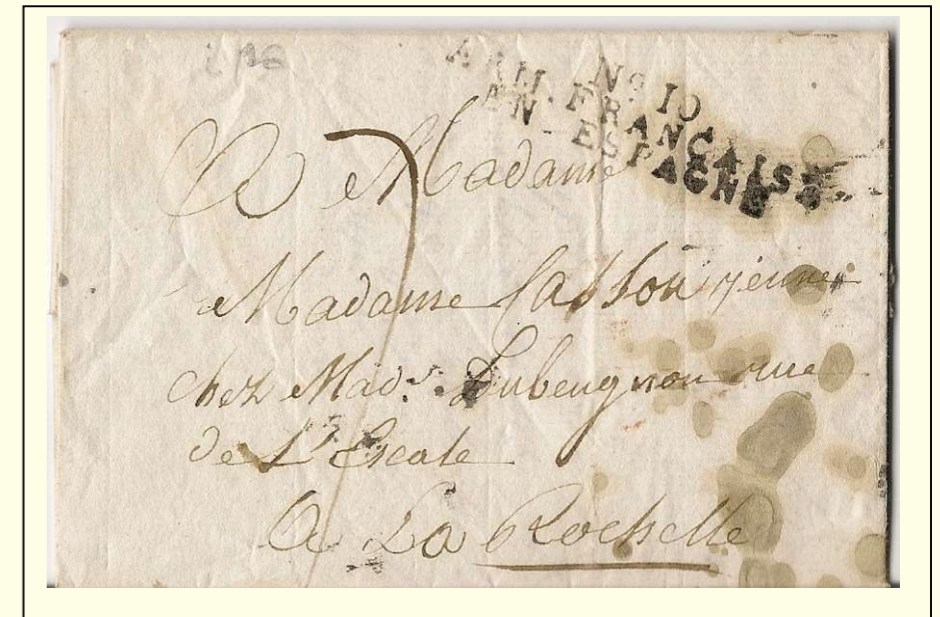 No. 10
ARM. FRANÇAISE
EN ESPAGNE
A Madame
Madame Casson jeune
chez Made. Dubeugnon rue
de L'Escale
A La Rochelle